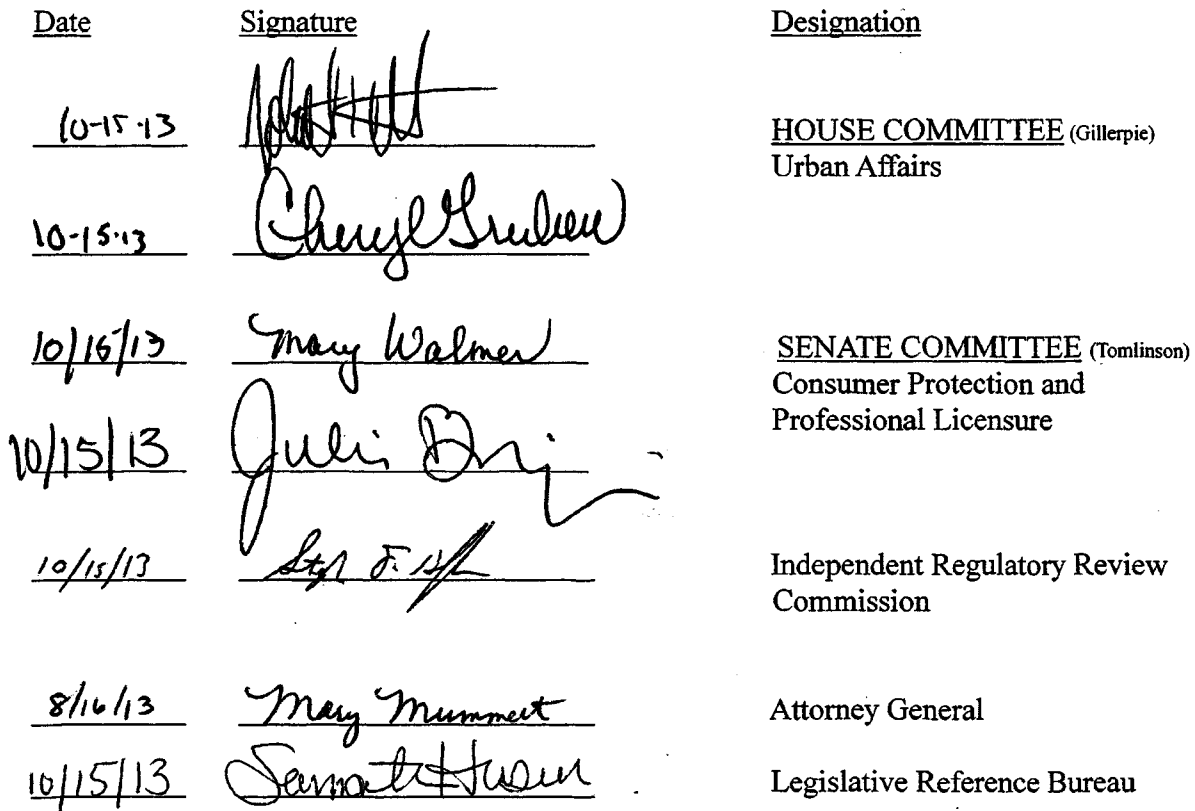 Date Signature Designation
10-15-13 HOUSE COMMITTEE (Gillerpie)
Urban Affairs
10-15-13 Cheryl
10/15/13 Mary Walmer SENATE COMMITTEE (Tomlinson)
Consumer Protection and
Professional Licensure
10/15/13
10/15/13 Independent Regulatory Review
Commission
8/16/13 Mary Mummert Attorney General
10/15/13 Legislative Reference Bureau